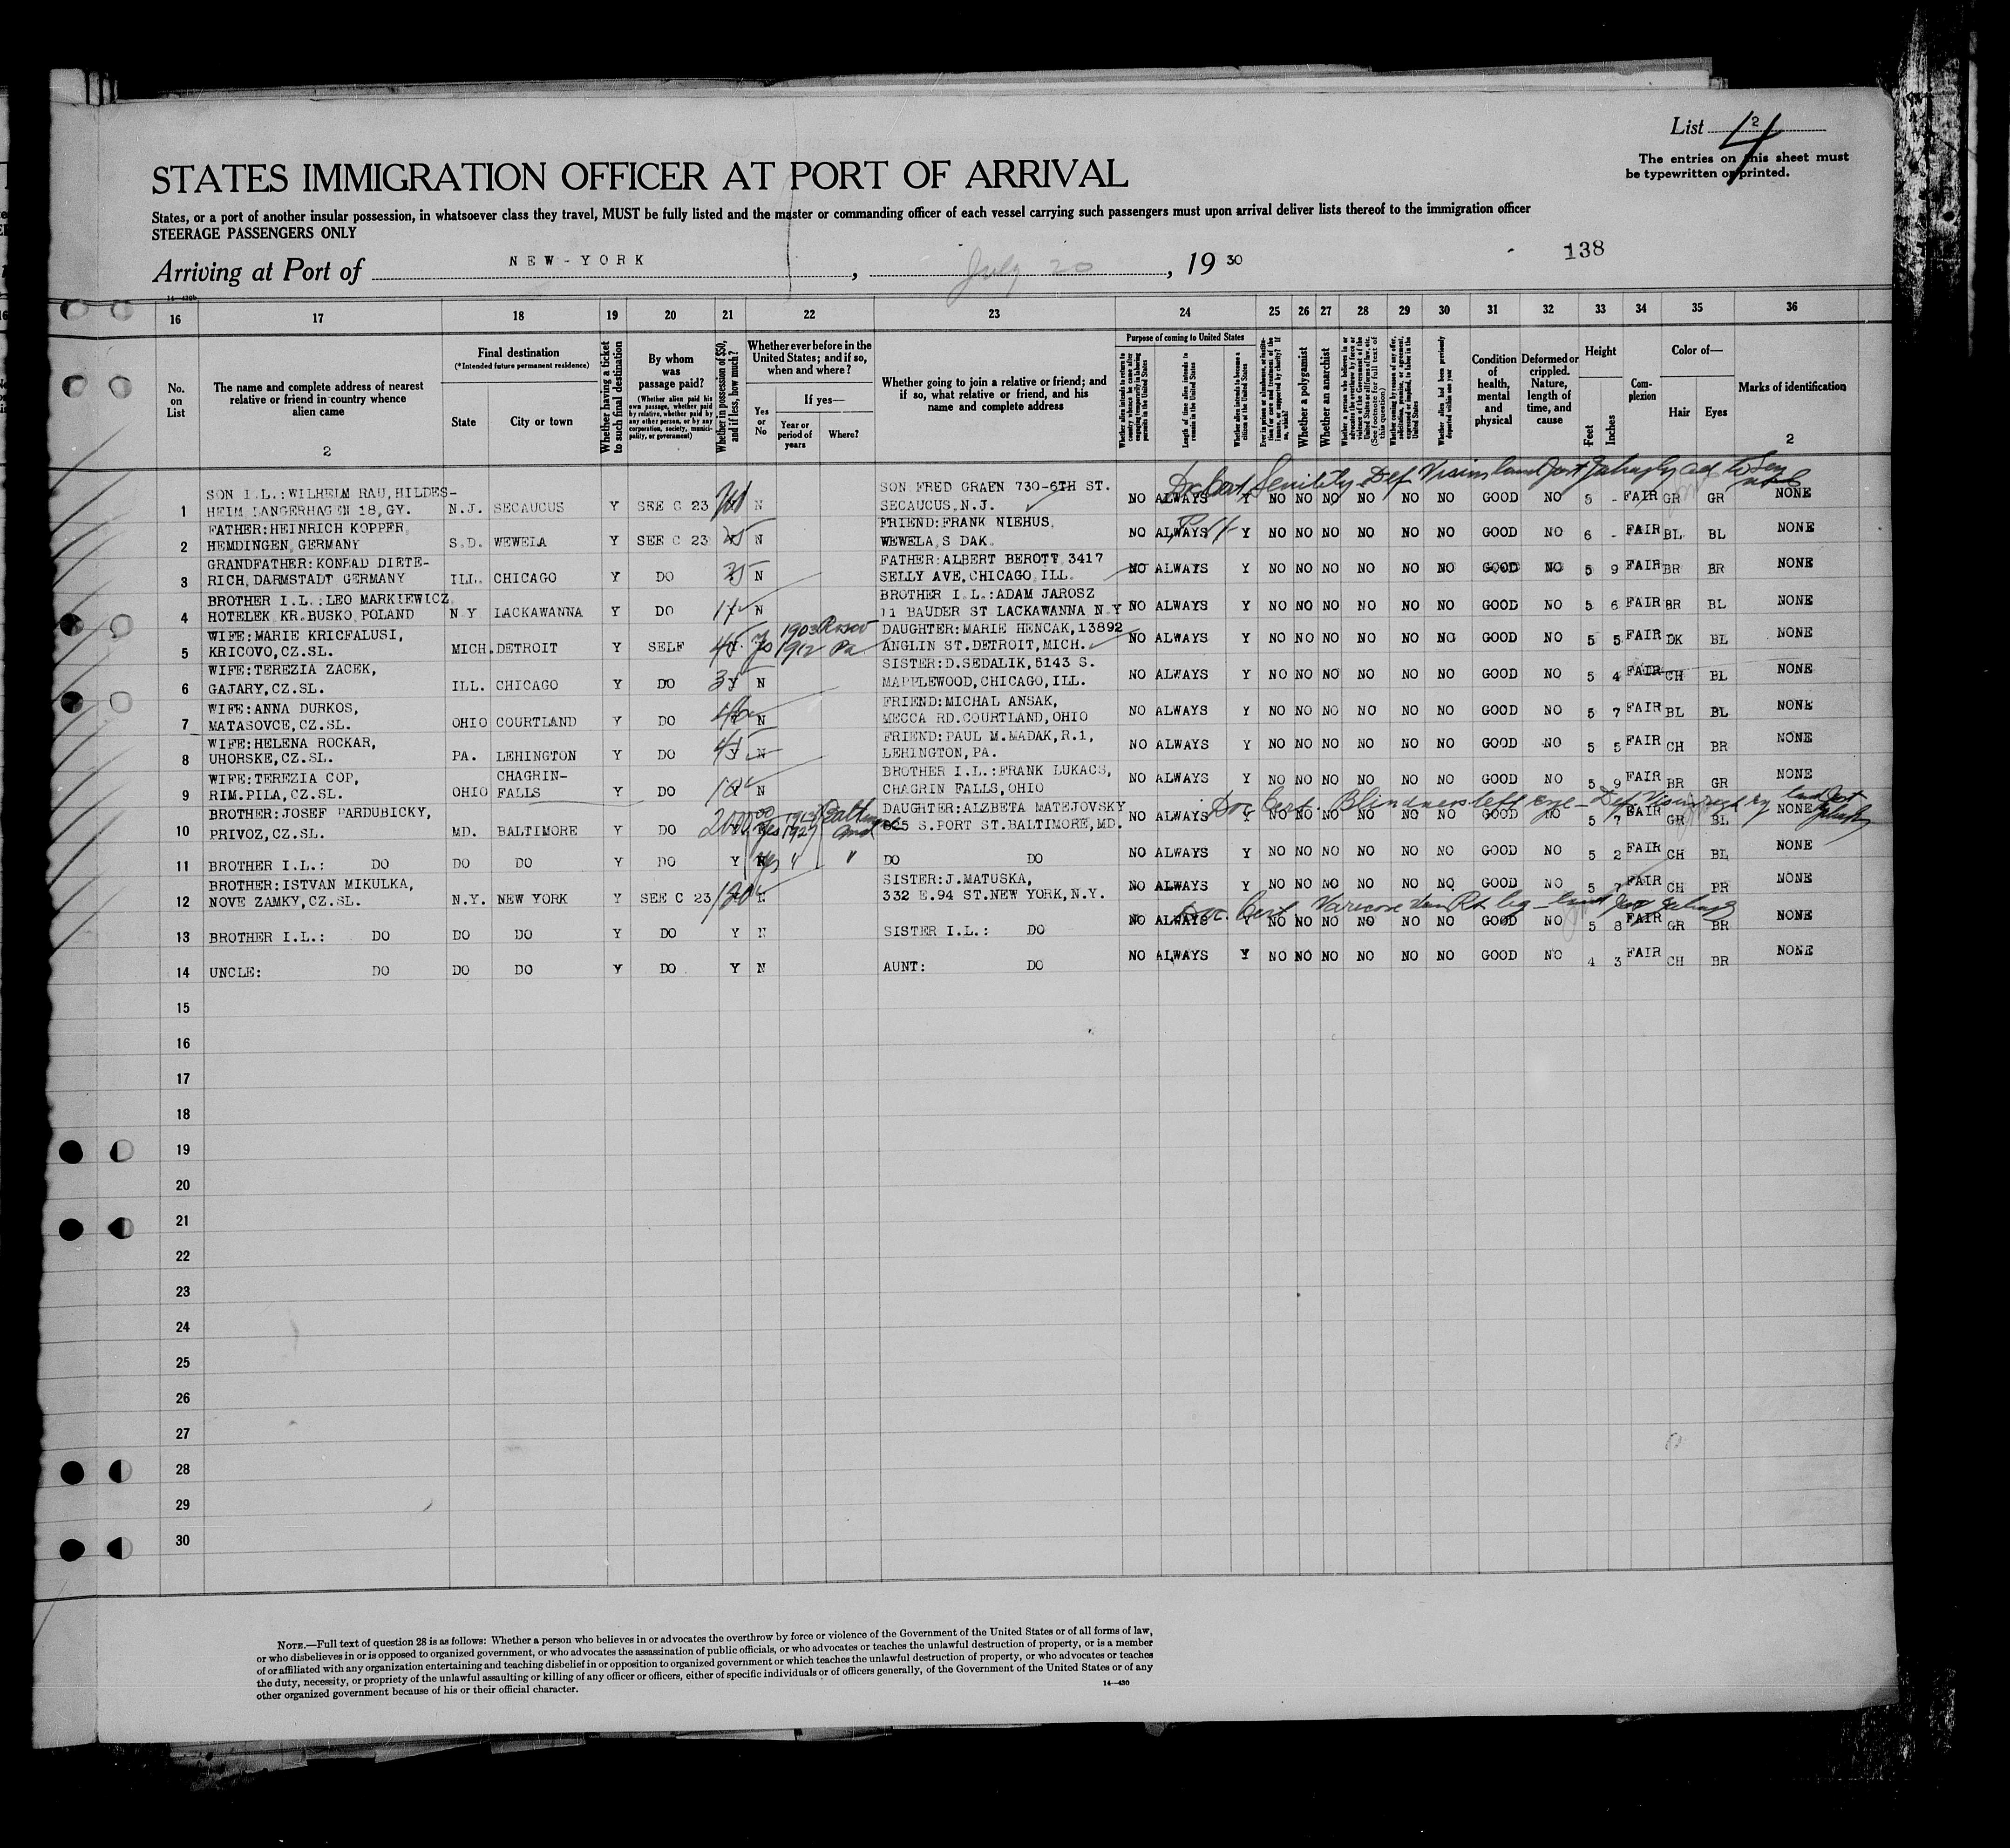 List 2 4
The entries on this sheet must
be typewritten or printed.
STATES IMMIGRATION OFFICER AT PORT OF ARRIVAL
States, or a port of another insular possession, in whatsoever class they travel, MUST be fully listed and the master or commanding officer of each vessel carrying such passengers must upon arrival deliver lists thereof to the immigration officer
STEERAGE PASSENGERS ONLY
138
Arriving at Port of NEW-YORK, July 20, 19 30
14—430b
16 17 18 19 20 21 22 23 24 25 26 27 28 29 30 31 32 33 34 35 36
No. on List
The name and complete address of nearest relative or friend in country whence alien came
2
Final destination
(*Intended future permanent residence)
State
City or town
Whether having a ticket to such final destination
By whom was passage paid?
(Whether alien paid his own passage, whether paid by relative, whether paid by any other person, or by any corporation, society, municipality, or government)
Whether in possession of $50, and if less, how much?
Whether ever before in the United States; and if so, when and where?
Yes or No
If yes—
Year or period of years
Where?
Whether going to join a relative or friend; and if so, what relative or friend, and his name and complete address
Purpose of coming to United States
Whether alien intends to return to country whence he came after engaging temporarily in laboring pursuits in the United States
Length of time alien intends to remain in the United States
Whether alien intends to become a citizen of the United States
Ever in prison or almshouse, or institution for care and treatment of the insane, or supported by charity? If so, which?
Whether a polygamist
Whether an anarchist
Whether a person who believes in or advocates the overthrow by force or violence of the Government of the United States or all forms of law, etc. (See footnote for full text of this question)
Whether coming by reason of any offer, solicitation, promise, or agreement, expressed or implied, to labor in the United States
Whether alien had been previously deported within one year
Condition of health, mental and physical
Deformed or crippled. Nature, length of time, and cause
Height
Feet
Inches
Complexion
Color of—
Hair
Eyes
Marks of identification
2
Senility Def Vision
SON I.L.:WILHELM RAU,HILDES- SON FRED GRAEN 730-6TH ST.
1 HEIM LANGERHAGEN 18,GY. N.J. SECAUCUS Y SEE C 23 N SECAUCUS,N.J. NO ALWAYS Y NO NO NO NO NO NO GOOD NO 5 - FAIR GR GR NONE
FATHER:HEINRICH KOPPER, FRIEND:FRANK NIEHUS,
2 HEMDINGEN,GERMANY S.D. WEWELA Y SEE C 23 25 N WEWELA,S DAK. NO ALWAYS Y NO NO NO NO NO NO GOOD NO 6 - FAIR BL BL NONE
GRANDFATHER:KONRAD DIETE- FATHER:ALBERT BEROTT 3417
3 RICH,DARMSTADT GERMANY ILL. CHICAGO Y DO 25 N SELLY AVE,CHICAGO,ILL. NO ALWAYS Y NO NO NO NO NO NO GOOD NO 5 9 FAIR BR BR NONE
BROTHER I.L.:LEO MARKIEWICZ BROTHER I.L.:ADAM JAROSZ
4 HOTELEK KR.BUSKO,POLAND N.Y LACKAWANNA Y DO N 11 BAUDER ST LACKAWANNA N.Y NO ALWAYS Y NO NO NO NO NO NO GOOD NO 5 6 FAIR BR BL NONE
WIFE:MARIE KRICFALUSI, 1903 DAUGHTER:MARIE HENCAK,13892
5 KRICOVO,CZ.SL. MICH. DETROIT Y SELF 45 1912 Pa ANGLIN ST.DETROIT,MICH. NO ALWAYS Y NO NO NO NO NO NO GOOD NO 5 5 FAIR DK BL NONE
WIFE:TEREZIA ZACEK, SISTER:D.SEDALIK,5143 S.
6 GAJARY,CZ.SL. ILL. CHICAGO Y DO N MAPLEWOOD,CHICAGO,ILL. NO ALWAYS Y NO NO NO NO NO NO GOOD NO 5 4 FAIR CH BL NONE
WIFE:ANNA DURKOS, FRIEND:MICHAL ANSAK,
7 MATASOVCE,CZ.SL. OHIO COURTLAND Y DO N MECCA RD.COURTLAND,OHIO NO ALWAYS Y NO NO NO NO NO NO GOOD NO 5 7 FAIR BL BL NONE
WIFE:HELENA ROCKAR, FRIEND:PAUL M.MADAK,R.1,
8 UHORSKE,CZ.SL. PA. LEHINGTON Y DO 45 N LEHINGTON,PA. NO ALWAYS Y NO NO NO NO NO NO GOOD NO 5 5 FAIR CH BR NONE
WIFE:TEREZIA COP, CHAGRIN- BROTHER I.L.:FRANK LUKACS,
9 RIM.PILA,CZ.SL. OHIO FALLS Y DO N CHAGRIN FALLS,OHIO NO ALWAYS Y NO NO NO NO NO NO GOOD NO 5 9 FAIR BR GR NONE
Doc Cert. Blindness left eye - Def Vision
BROTHER:JOSEF PARDUBICKY, DAUGHTER:ALZBETA MATEJOVSKY
10 PRIVOZ,CZ.SL. MD. BALTIMORE Y DO Yes 1927 625 S.PORT ST.BALTIMORE,MD. NO ALWAYS Y NO NO NO NO NO NO GOOD NO 5 7 FAIR GR BL NONE
11 BROTHER I.L.: DO DO DO Y DO Y Yes " " DO DO NO ALWAYS Y NO NO NO NO NO NO GOOD NO 5 2 FAIR CH BL NONE
BROTHER:ISTVAN MIKULKA, SISTER:J.MATUSKA,
12 NOVE ZAMKY,CZ.SL. N.Y. NEW YORK Y SEE C 23 120 332 E.94 ST.NEW YORK,N.Y. NO ALWAYS Y NO NO NO NO NO NO GOOD NO 5 7 FAIR CH BR NONE
Doc. Cert Varicose Vein Rt leg
13 BROTHER I.L.: DO DO DO Y DO Y N SISTER I.L.: DO NO ALWAYS Y NO NO NO NO NO NO GOOD NO 5 8 FAIR GR BR NONE
14 UNCLE: DO DO DO Y DO Y N AUNT: DO NO ALWAYS Y NO NO NO NO NO NO GOOD NO 4 3 FAIR CH BR NONE
15
16
17
18
19
20
21
22
23
24
25
26
27
28
29
30
NOTE.—Full text of question 28 is as follows: Whether a person who believes in or advocates the overthrow by force or violence of the Government of the United States or of all forms of law,
or who disbelieves in or is opposed to organized government, or who advocates the assassination of public officials, or who advocates or teaches the unlawful destruction of property, or is a member
of or affiliated with any organization entertaining and teaching disbelief in or opposition to organized government or which teaches the unlawful destruction of property, or who advocates or teaches
the duty, necessity, or propriety of the unlawful assaulting or killing of any officer or officers, either of specific individuals or of officers generally, of the Government of the United States or of any
other organized government because of his or their official character.
14—430